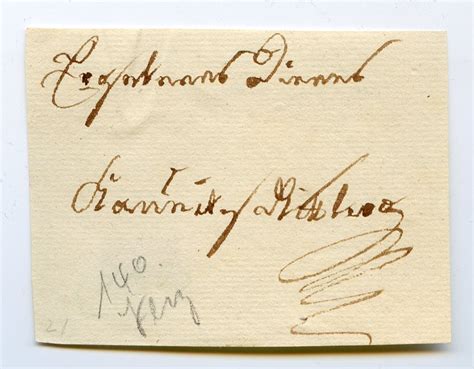 Ergebener Diener
Kaunitz Rittberg
140.
21